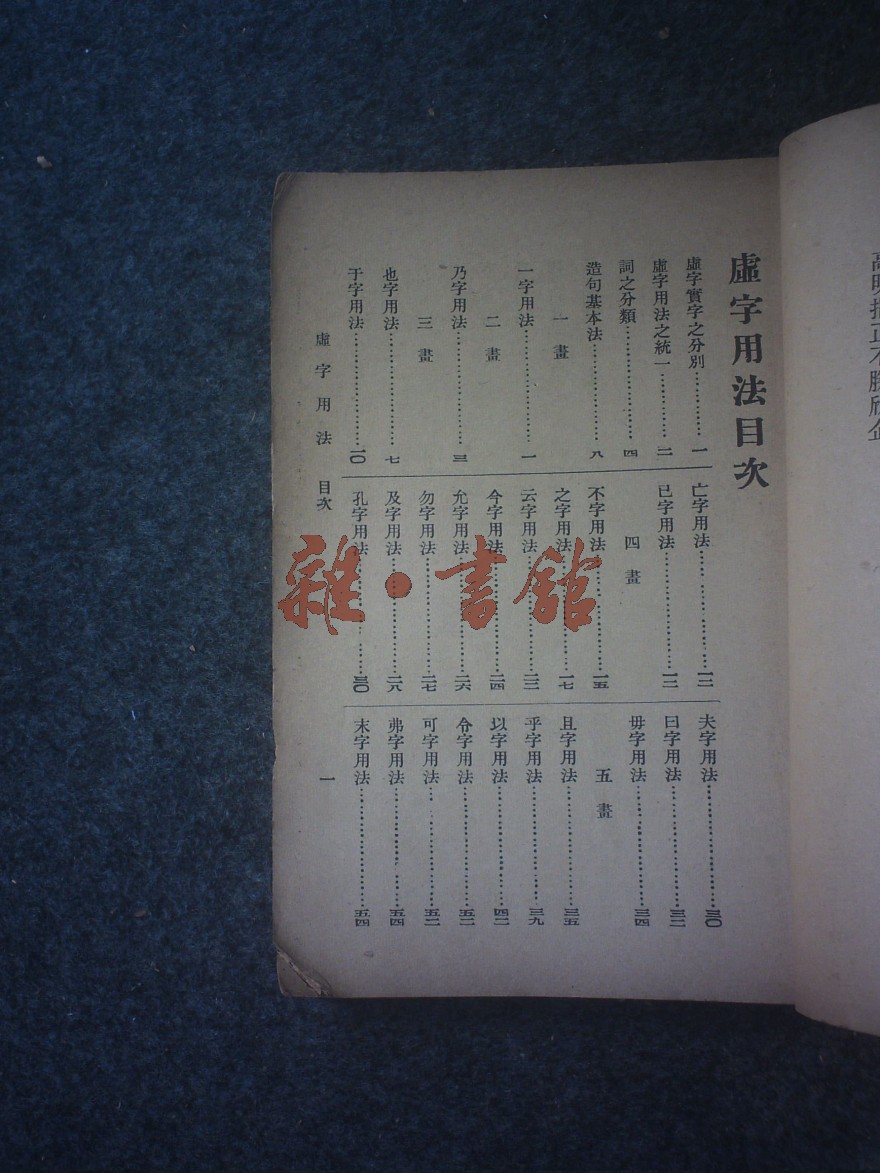 高明指正不勝欣企
虛字用法目次
虛字實字之分別…………一
虛字用法之統一…………二
詞之分類…………四
造句基本法…………八
一畫
一字用法…………一
二畫
乃字用法…………三
三畫
也字用法…………七
于字用法…………一〇
亡字用法…………一二
已字用法…………一三
四畫
不字用法…………一五
之字用法…………一七
云字用法…………二三
今字用法…………二四
允字用法…………二六
勿字用法…………二七
及字用法…………二八
孔字用法…………三〇
夫字用法…………三〇
曰字用法…………三二
毋字用法…………三四
五畫
且字用法…………三五
乎字用法…………三九
以字用法…………四二
令字用法…………五二
可字用法…………五二
弗字用法…………五四
末字用法…………五四
虛字用法 目次
一
雜·書館